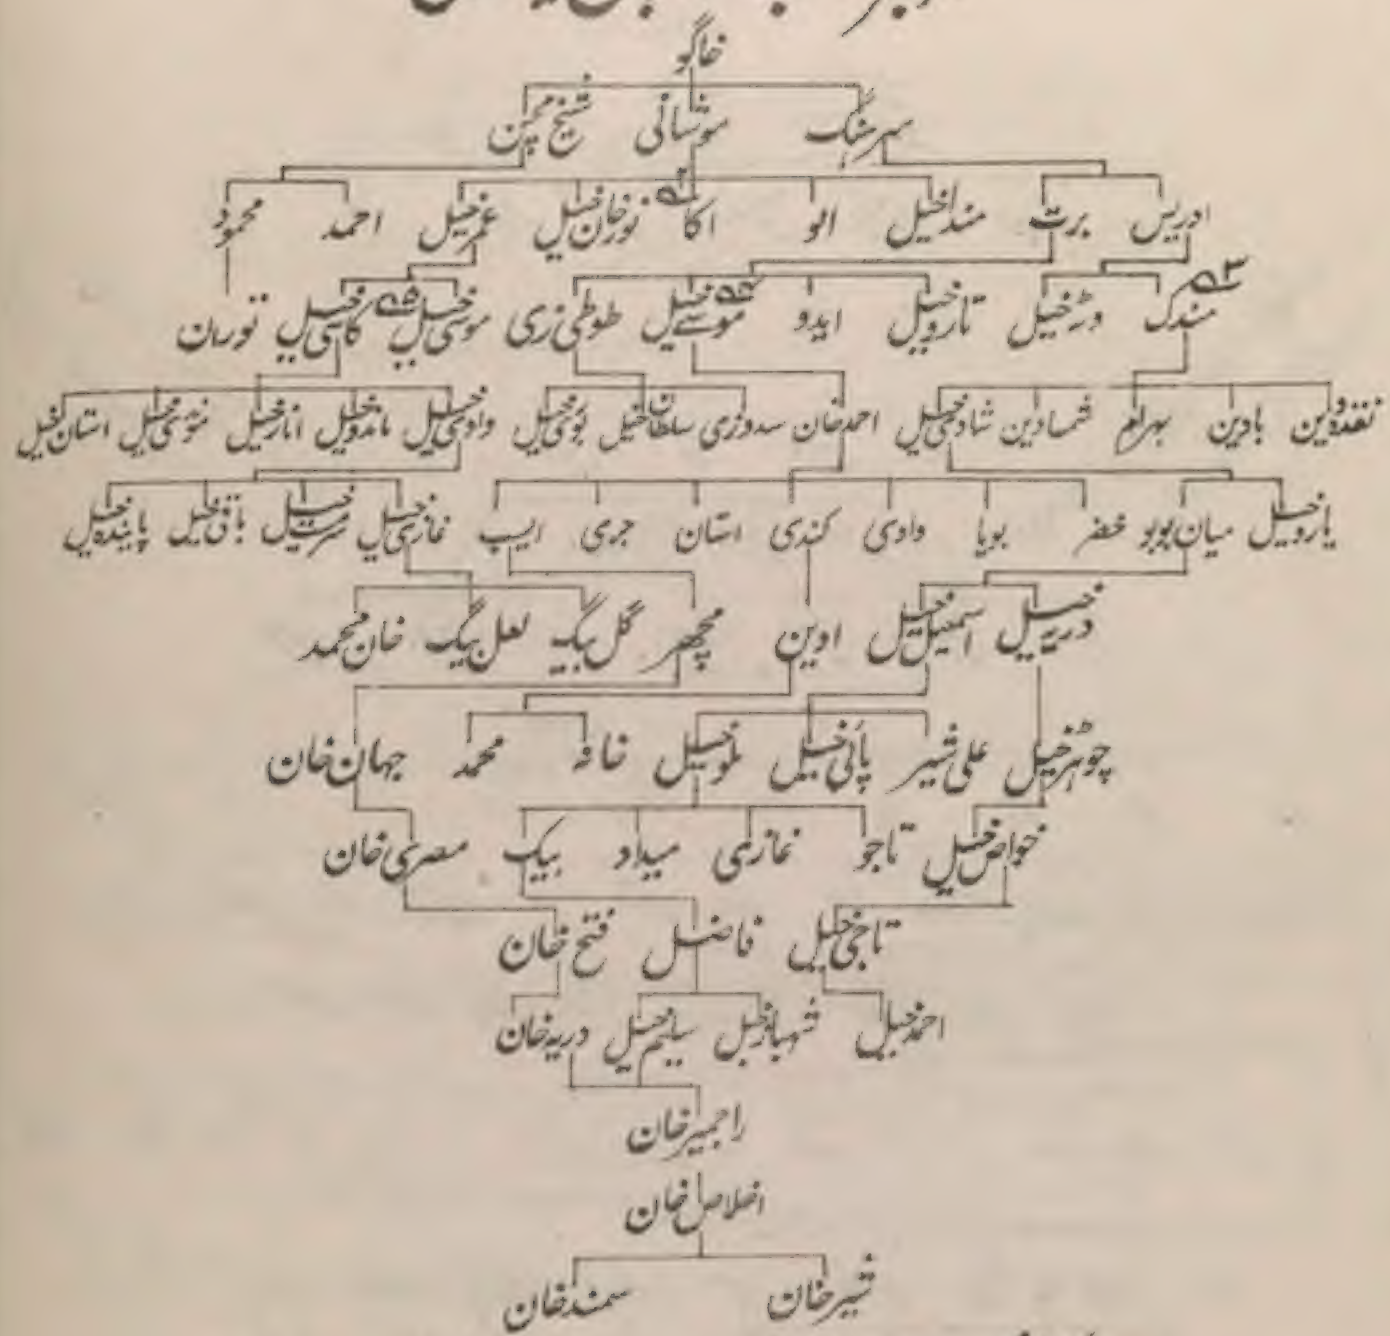 خاگو
سرہنگ موشانی شیخ محسن
ادریس برت منداخیل الو اکا نورخان خیل عمرخیل احمد محمود
مندک وٹہ خیل تاروخیل ایدو موسے خیل طوطی زری موسی خیل کاسی خیل تورمان
بادین بہرام شمادین شادی خیل احمد خان سدوزی سلطان خیل بوکی خیل وادی خیل ماندوخیل انارخیل استان خیل
یاروخیل میان بوبو خضر بوبا وادی کندی استان جری ایسپ غازی خیل باقی خیل پایندہ خیل
دریہ خیل اسمعیل خیل اوین مچھر گل بیگ لعل بیگ خان محمد
چوہڑخیل علی شیر پائی خیل ملوخیل خانہ محمد جہان خان
خواص خیل تاجو غازی میداد بیک مصری خان
تاجی خیل فاضل فتح خان
احمد خیل شہباز خیل سلیم خیل دریہ خان
راجمیر خان
اخلاص خان
شیر خان سمند خان